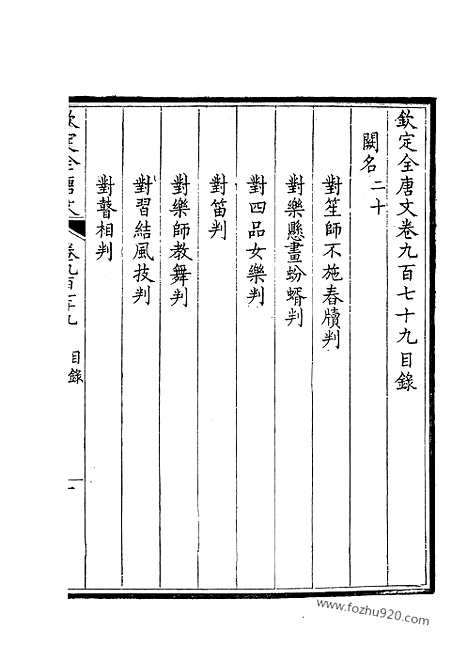 欽定全唐文卷九百七十九目錄
闕名二十
對笙師不施舂牘判
對樂懸畫蚡蝑判
對四品女樂判
對笛判
對樂師教舞判
對習結風技判
對瞽相判
欽定全唐文
卷九百七十九
目錄
一
www.fozhu920.com